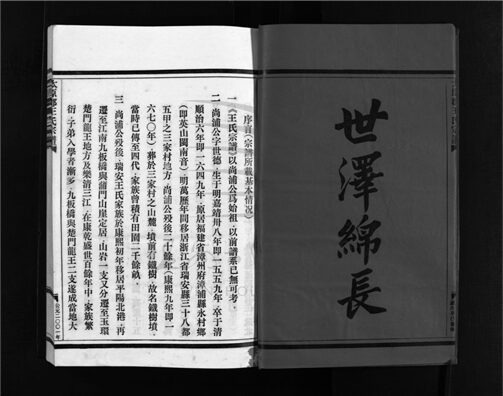 世澤綿長
序言（宗譜所載基本情況）
一 《王氏宗譜》以尚浦公爲始祖，以前譜系已無可考。
二 尚浦公字世德，生于明嘉靖卅八年即一五五九年，卒于清
順治六年即一六四九年，原居福建省漳州府漳浦縣永村鄉
（即英山閩南音），明萬歷年間移居浙江省瑞安縣三十八都
五甲之三家村地方。尚浦公殁後二十餘年（康熙九年即一
六七〇年）葬於三家村之山麓，墳前有鐵樹，故名鐵樹墳，
當時已傳至四代，家族曾積有田園二千餘畝。
三 尚浦公殁後，瑞安王氏家族於康熙初年移居平陽北港，再
遷至江南九板橋與蒲門山崖定居，山岩一支又分遷至玉環
楚門龍王地方及樂清三江，在康乾盛世百餘年中，家族繁
衍，子弟入學者漸多，九板橋與楚門龍王二支遂成當地大